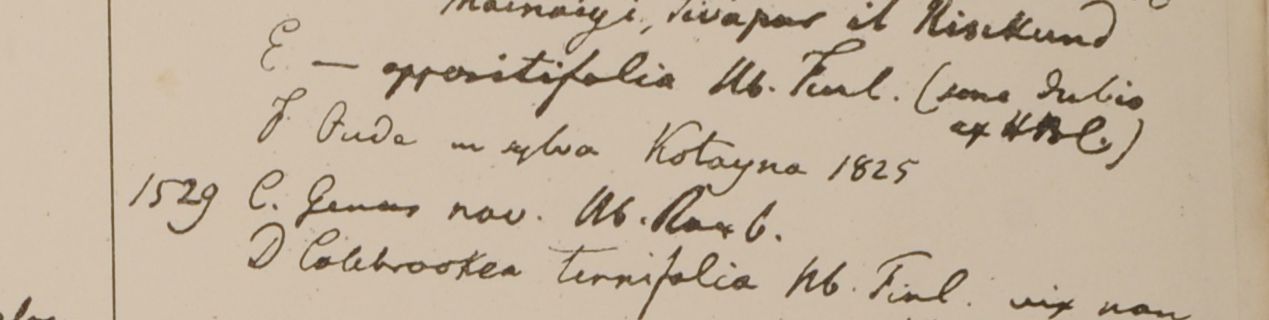 Sivapur et Risikund
E — oppositifolia Hb. Finl. (sine dubio
ex HBC.)
F. Oude in sylva Kotayna 1825
1529 C. Genus nov. Hb. Roxb.
D Colebrookea ternifolia Hb. Finl. vix non